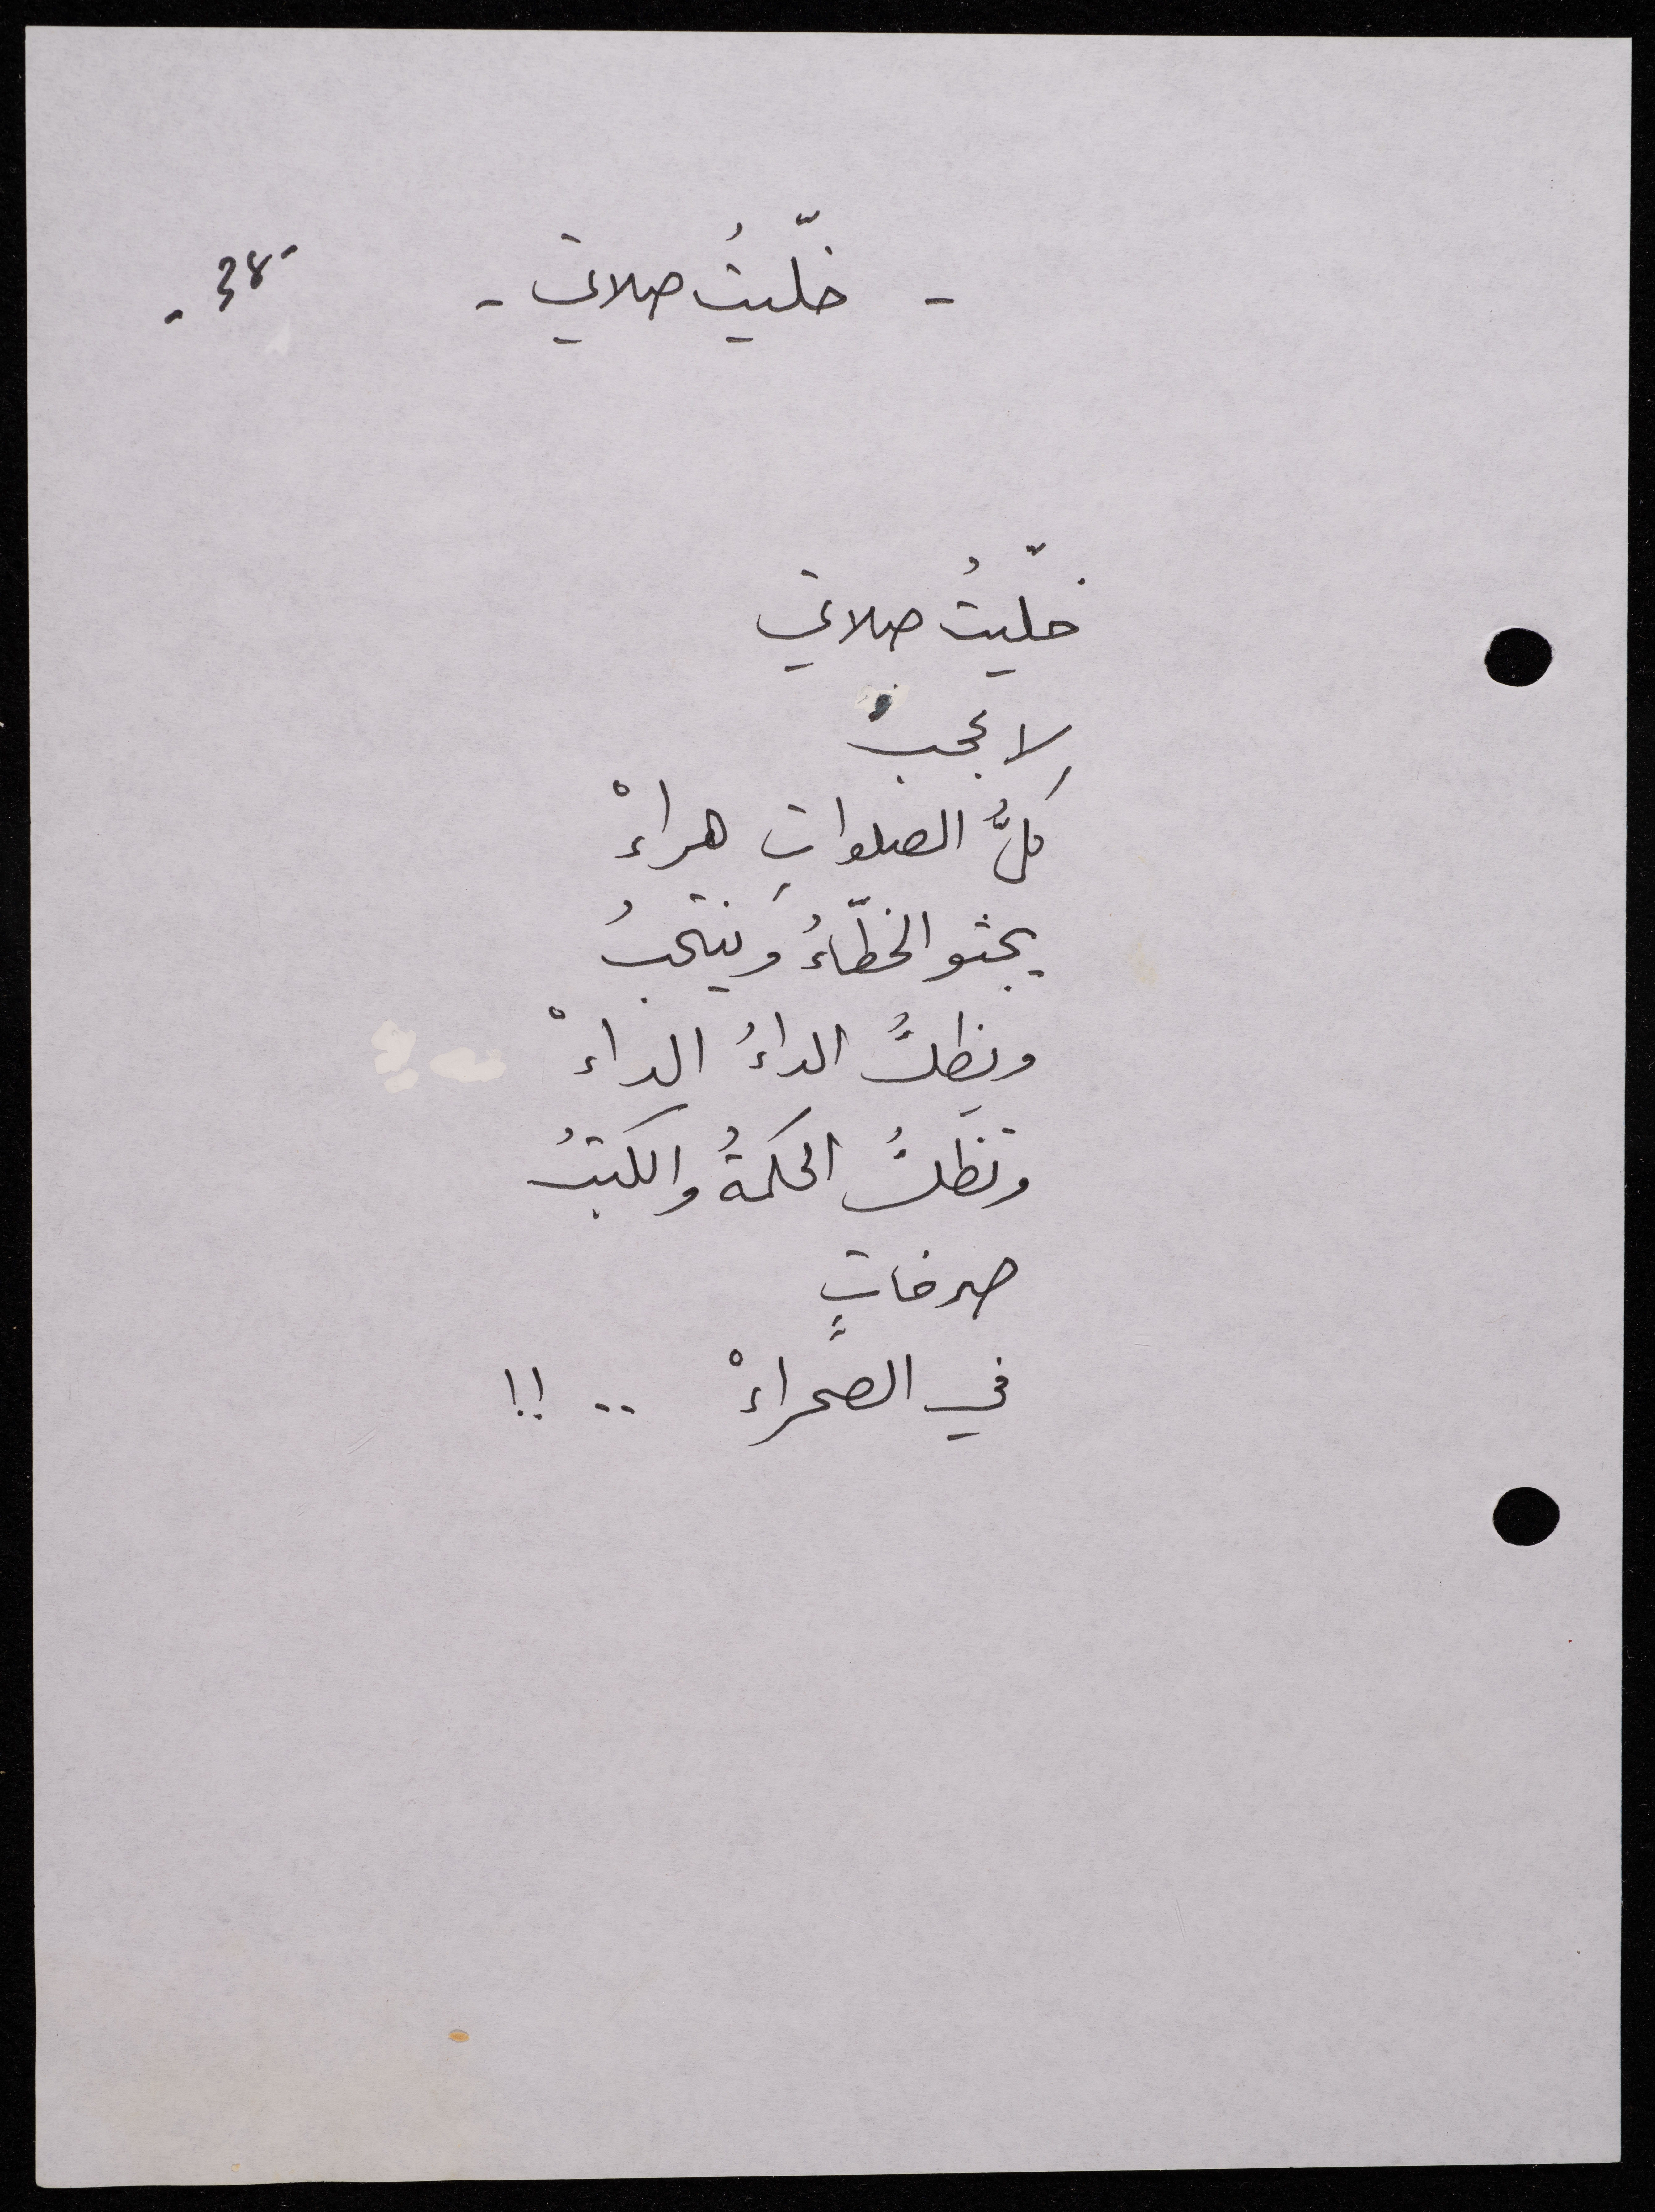 - خلّيتُ صلاتي - -38-
خلّيتُ صلاتي
لا عجبُ
كلُّ الصلواتِ هراءْ
يجثو الخطّاءُ وَينتحبُ
ويظلُّ الداءُ الداءْ
وتظلُّ الحكمةُ والكتبُ
صرخاتٍ
في الصحراءْ .. !!